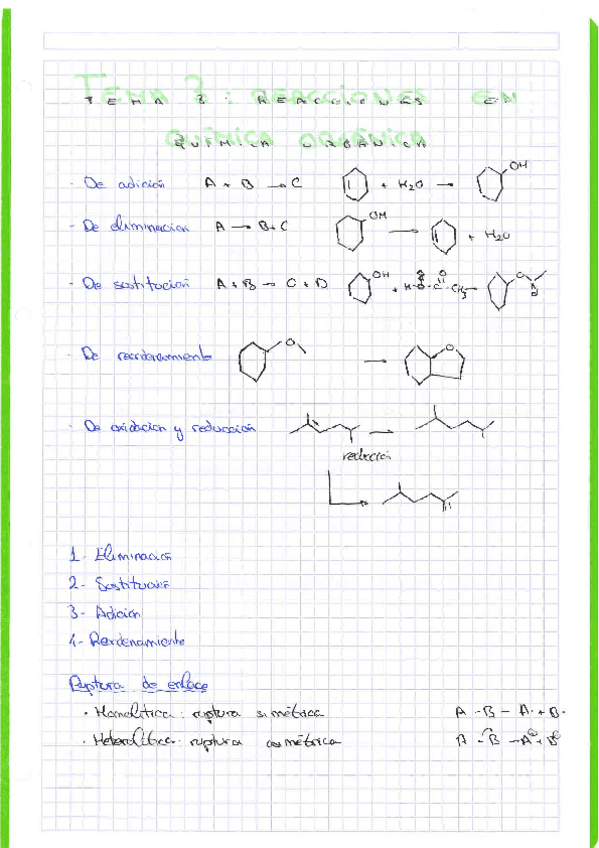 TEMA 3: REACCIONES EN
QUÍMICA ORGÁNICA
- De adición A + B → C + H₂O → OH
- De eliminacion A → B + C OH → + H₂O
- De sustitución A + B → C + D OH + CH₃ → O
- De reordenamiento O → O
- De oxidacion y reducción →
reducción
1- Eliminación
2- Sustitución
3- Adición
4- Reordenamiento
Ruptura de enlace
· Homolítica: ruptura simétrica A - B — A· + B·
· Heterolítica: ruptura asimétrica A - B — A⊕ + B⊖